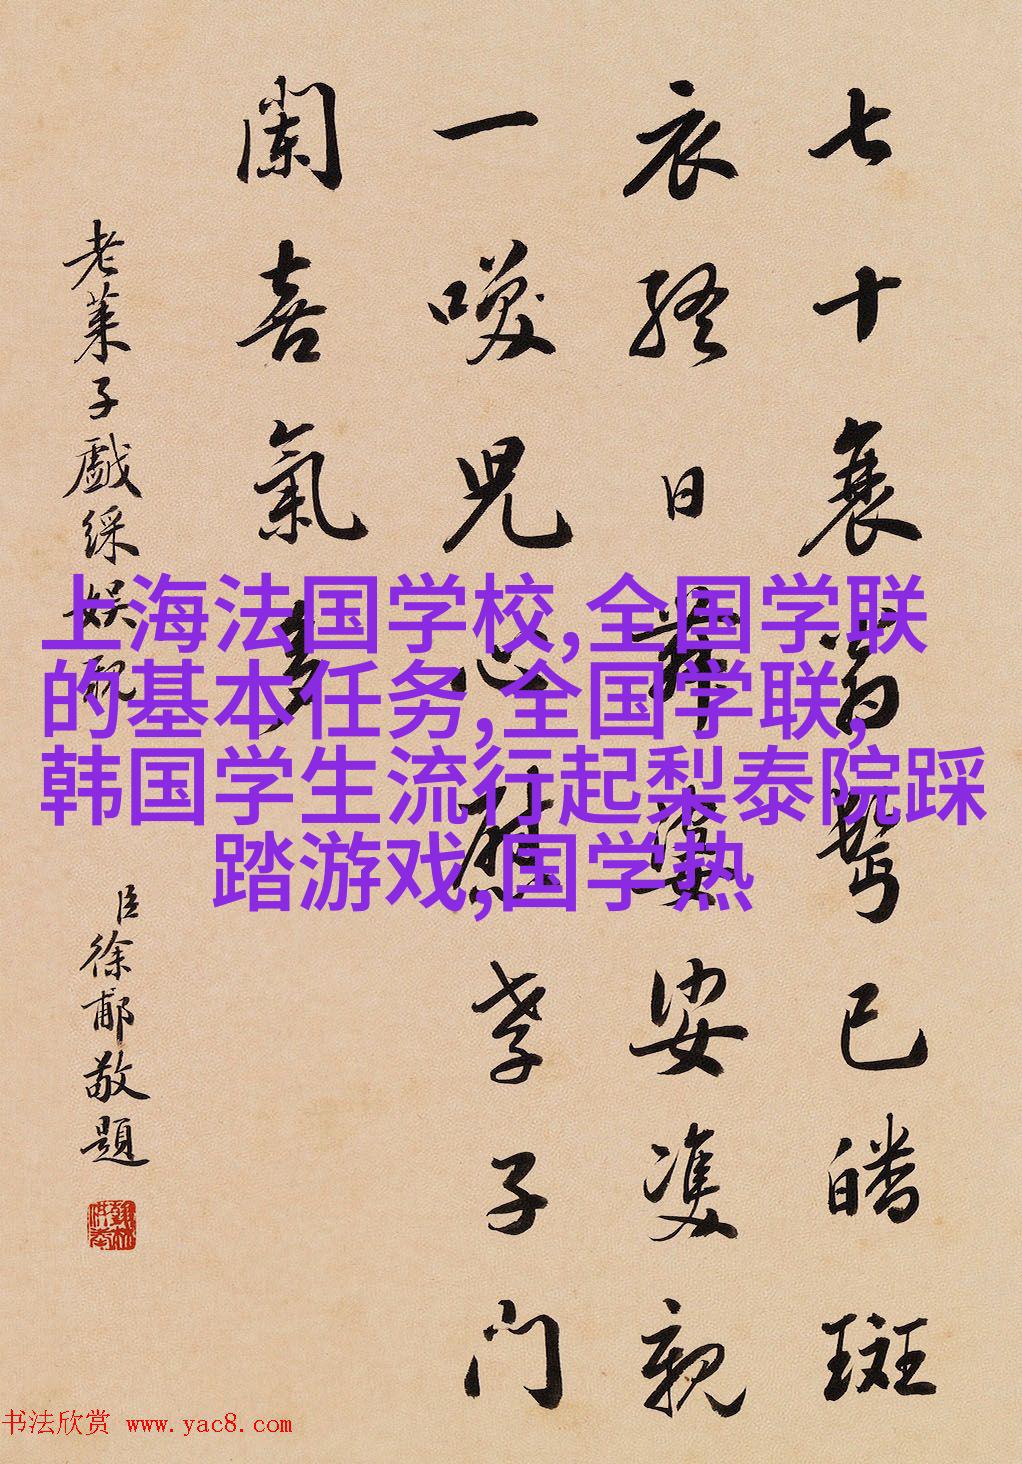 七十衰翁鬢已皤斑
衣終日舞婆娑雙親
一兒心慰孝子门
闌喜氣多
老萊子戲綵娱親
臣徐郙敬題
上海法国学校,全国学联
的基本任务,全国学联,
韩国学生流行起梨泰院踩
踏游戏,国学热
书法欣赏 www.yac8.com